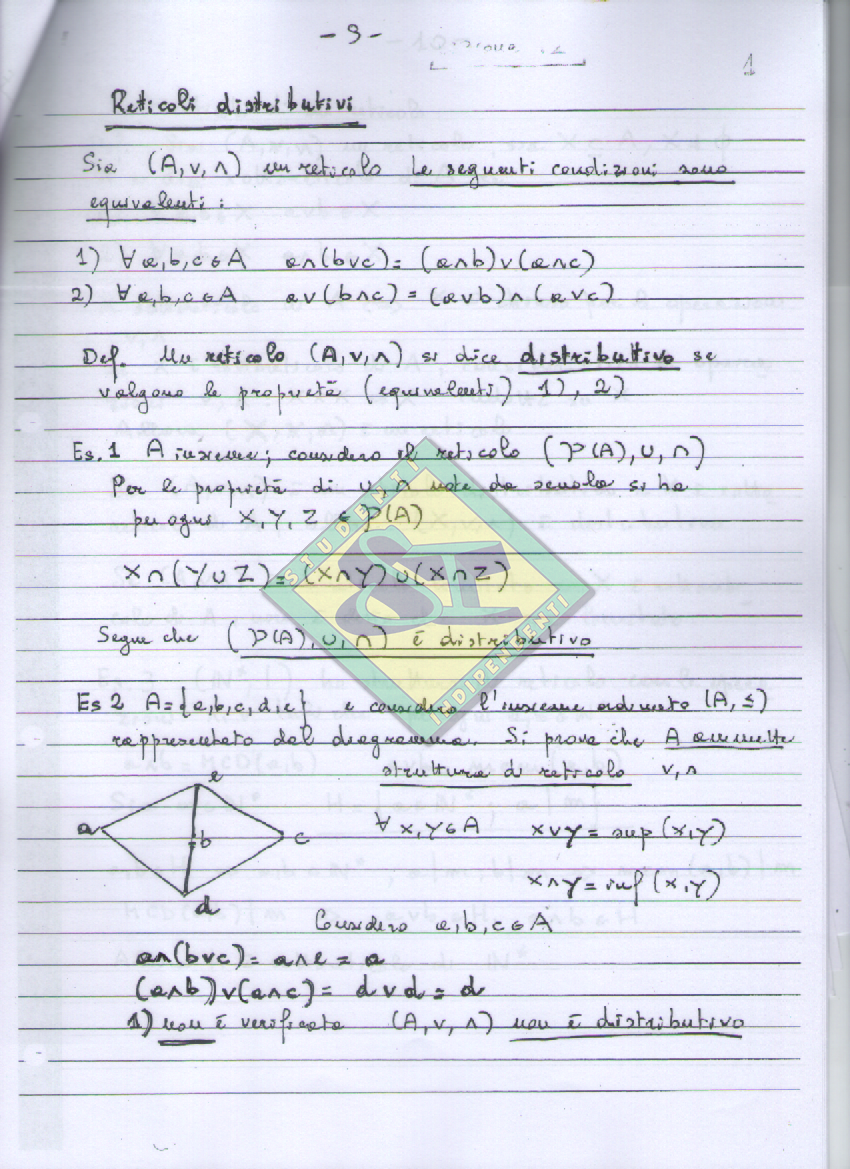 - 9 -
1
Reticoli distributivi
Sia (A, ∨, ∧) un reticolo Le seguenti condizioni sono
equivalenti :
1) ∀ a, b, c ∈ A a∧(b∨c) = (a∧b)∨(a∧c)
2) ∀ a, b, c ∈ A a∨(b∧c) = (a∨b)∧(a∨c)
Def. Un reticolo (A, ∨, ∧) si dice distributivo se
valgono le proprietà (equivalenti) 1), 2)
Es. 1 A insieme; considero il reticolo (P(A), ∪, ∩)
Per le proprietà di ∪, ∩ note da scuola si ha
per ogni X, Y, Z ∈ P(A)
X∩(Y∪Z) = (X∩Y)∪(X∩Z)
Segue che (P(A), ∪, ∩) è distributivo
Es 2 A={a,b,c,d,e} e considero l'insieme ordinato (A, ≤)
rappresentato dal diagramma. Si prova che A ammette
struttura di reticolo ∨, ∧
e
a
b
c
d
∀ x, y ∈ A x∨y = sup (x, y)
x∧y = inf (x, y)
Considero a, b, c ∈ A
a∧(b∨c) = a∧e = a
(a∧b)∨(a∧c) = d∨d = d
1) non è verificata (A, ∨, ∧) non è distributivo
STUDENTI
SI
INDIPENDENTI